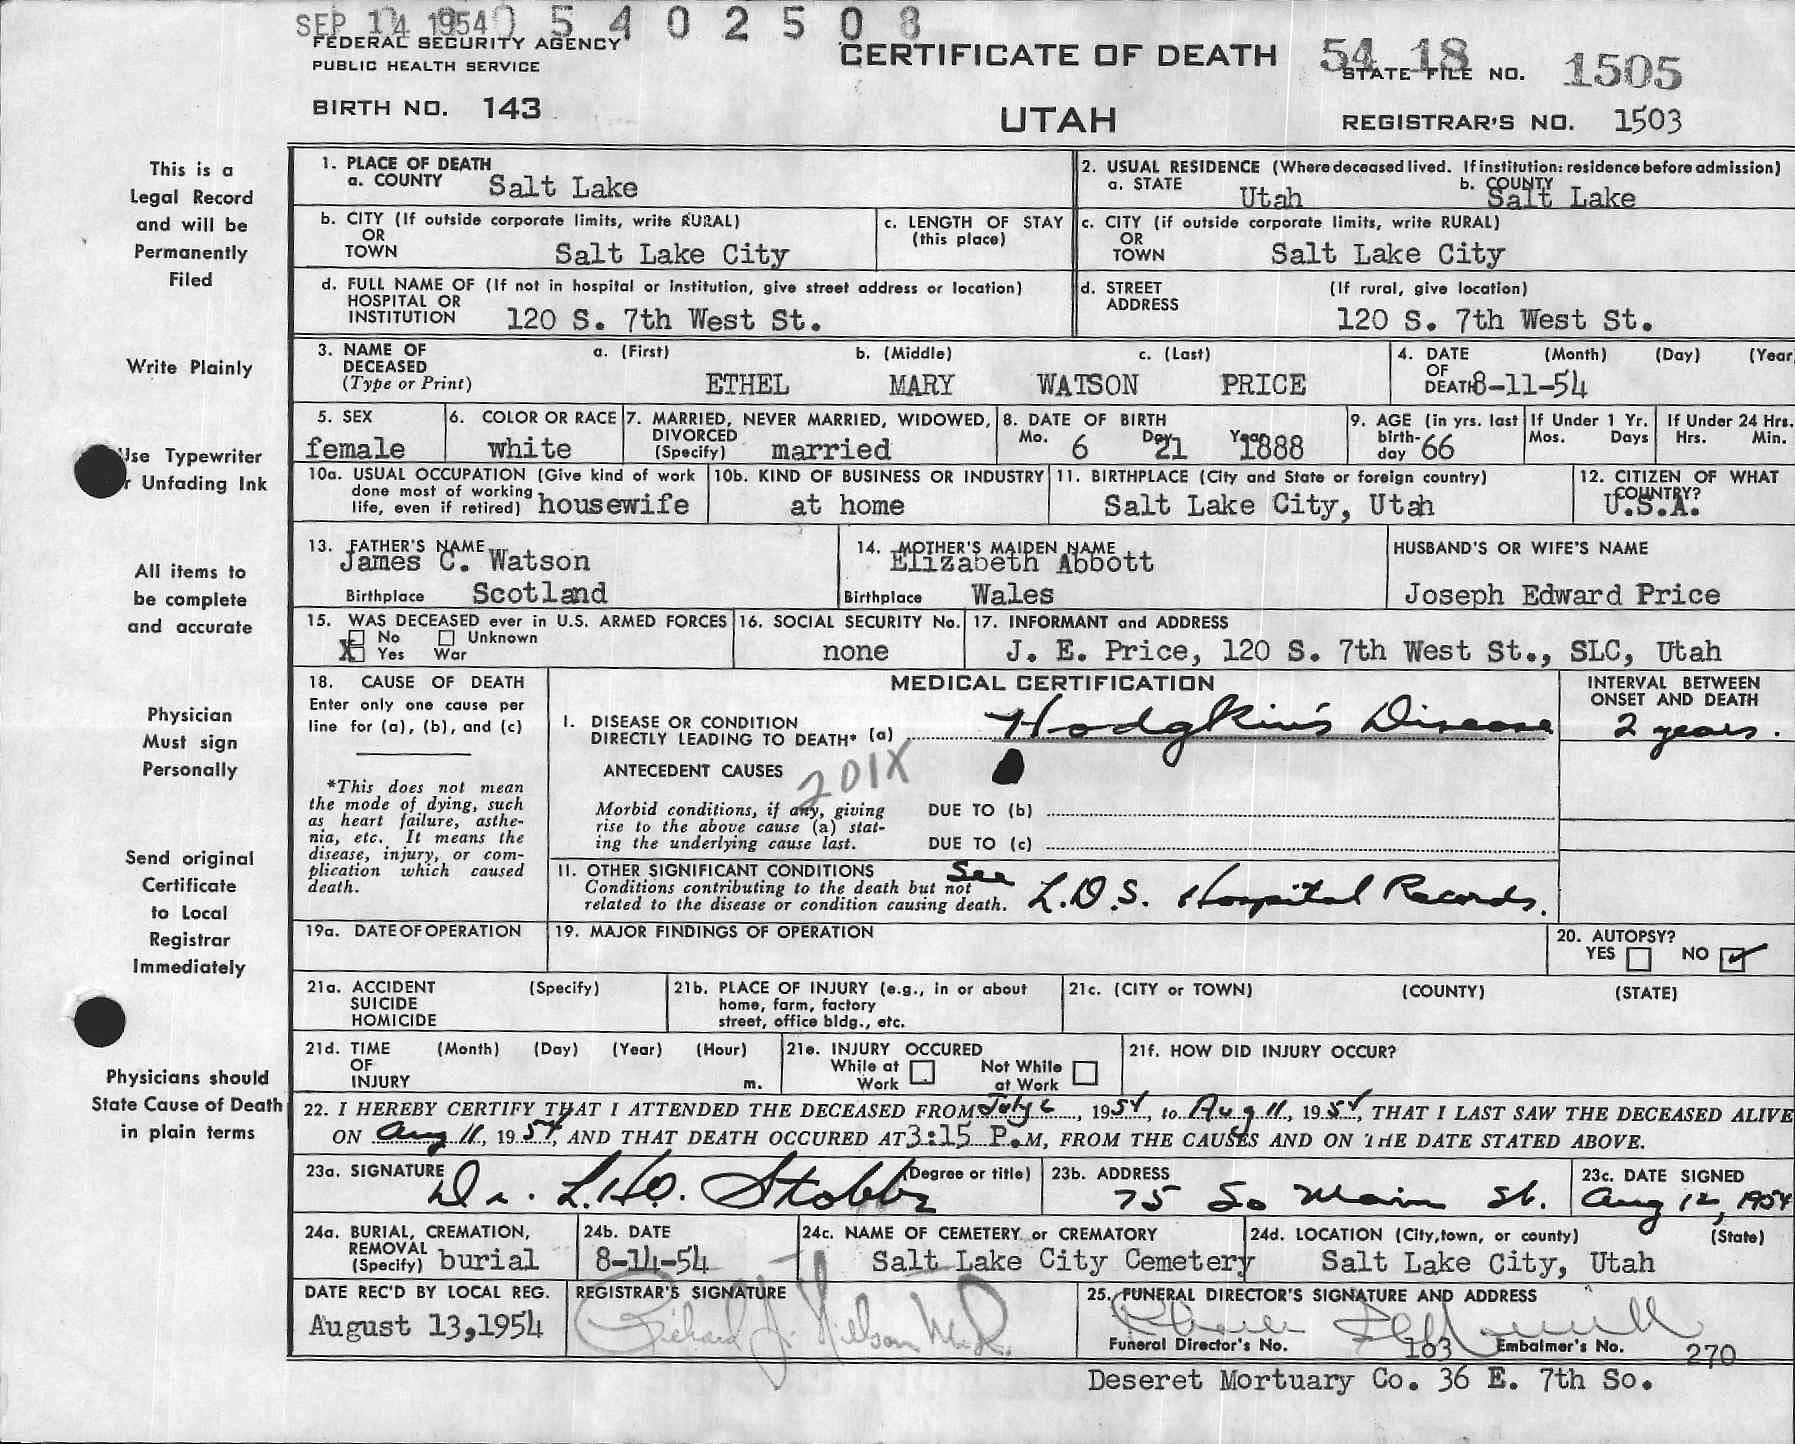 SEP 14 1954 0 5 4 0 2 5 0 8
FEDERAL SECURITY AGENCY
PUBLIC HEALTH SERVICE
BIRTH NO. 143
CERTIFICATE OF DEATH
UTAH
54 18 1505
STATE FILE NO.
REGISTRAR'S NO. 1503
This is a
Legal Record
and will be
Permanently
Filed
Write Plainly
Use Typewriter
r Unfading Ink
All items to
be complete
and accurate
Physician
Must sign
Personally
Send original
Certificate
to Local
Registrar
Immediately
Physicians should
State Cause of Death
in plain terms
1. PLACE OF DEATH
a. COUNTY Salt Lake
2. USUAL RESIDENCE (Where deceased lived. If institution: residence before admission)
a. STATE Utah b. COUNTY Salt Lake
b. CITY (If outside corporate limits, write RURAL)
OR
TOWN Salt Lake City
c. LENGTH OF STAY
(this place)
c. CITY (if outside corporate limits, write RURAL)
OR
TOWN Salt Lake City
d. FULL NAME OF (If not in hospital or institution, give street address or location)
HOSPITAL OR
INSTITUTION 120 S. 7th West St.
d. STREET (If rural, give location)
ADDRESS 120 S. 7th West St.
3. NAME OF a. (First) b. (Middle) c. (Last)
DECEASED
(Type or Print) ETHEL MARY WATSON PRICE
4. DATE (Month) (Day) (Year
OF
DEATH 8-11-54
5. SEX
female
6. COLOR OR RACE
white
7. MARRIED, NEVER MARRIED, WIDOWED,
DIVORCED
(Specify) married
8. DATE OF BIRTH
Mo. 6 Day 21 Year 1888
9. AGE (in yrs. last
birth-
day 66
If Under 1 Yr.
Mos. Days
If Under 24 Hrs.
Hrs. Min.
10a. USUAL OCCUPATION (Give kind of work
done most of working
life, even if retired) housewife
10b. KIND OF BUSINESS OR INDUSTRY
at home
11. BIRTHPLACE (City and State or foreign country)
Salt Lake City, Utah
12. CITIZEN OF WHAT
COUNTRY?
U.S.A.
13. FATHER'S NAME
James C. Watson
Birthplace Scotland
14. MOTHER'S MAIDEN NAME
Elizabeth Abbott
Birthplace Wales
HUSBAND'S OR WIFE'S NAME
Joseph Edward Price
15. WAS DECEASED ever in U.S. ARMED FORCES
No Unknown
X Yes War
16. SOCIAL SECURITY No.
none
17. INFORMANT and ADDRESS
J. E. Price, 120 S. 7th West St., SLC, Utah
18. CAUSE OF DEATH
Enter only one cause per
line for (a), (b), and (c)
*This does not mean
the mode of dying, such
as heart failure, asthe-
nia, etc. It means the
disease, injury, or com-
plication which caused
death.
MEDICAL CERTIFICATION
I. DISEASE OR CONDITION
DIRECTLY LEADING TO DEATH* (a) Hodgkin's Disease
ANTECEDENT CAUSES 201X
Morbid conditions, if any, giving
rise to the above cause (a) stat-
ing the underlying cause last.
DUE TO (b)
DUE TO (c)
INTERVAL BETWEEN
ONSET AND DEATH
2 years.
11. OTHER SIGNIFICANT CONDITIONS
Conditions contributing to the death but not
related to the disease or condition causing death.
See L.D.S. Hospital Records.
19a. DATE OF OPERATION
19. MAJOR FINDINGS OF OPERATION
20. AUTOPSY?
YES NO ✓
21a. ACCIDENT (Specify)
SUICIDE
HOMICIDE
21b. PLACE OF INJURY (e.g., in or about
home, farm, factory
street, office bldg., etc.
21c. (CITY or TOWN) (COUNTY) (STATE)
21d. TIME (Month) (Day) (Year) (Hour)
OF
INJURY m.
21e. INJURY OCCURED
While at Not While
Work at Work
21f. HOW DID INJURY OCCUR?
22. I HEREBY CERTIFY THAT I ATTENDED THE DECEASED FROM July 6, 1954, to Aug 11, 1954, THAT I LAST SAW THE DECEASED ALIVE
ON Aug 11, 1954, AND THAT DEATH OCCURED AT 3:15 P.M, FROM THE CAUSES AND ON THE DATE STATED ABOVE.
23a. SIGNATURE (Degree or title)
Dr. L.H.O. Stobbe
23b. ADDRESS
75 So Main St.
23c. DATE SIGNED
Aug 12, 1954
24a. BURIAL, CREMATION,
REMOVAL
(Specify) burial
24b. DATE
8-14-54
24c. NAME OF CEMETERY or CREMATORY
Salt Lake City Cemetery
24d. LOCATION (City, town, or county) (State)
Salt Lake City, Utah
DATE REC'D BY LOCAL REG.
August 13,1954
REGISTRAR'S SIGNATURE
Richard J. Nielson M.D.
25. FUNERAL DIRECTOR'S SIGNATURE AND ADDRESS
Funeral Director's No. 163 Embalmer's No. 270
Deseret Mortuary Co. 36 E. 7th So.